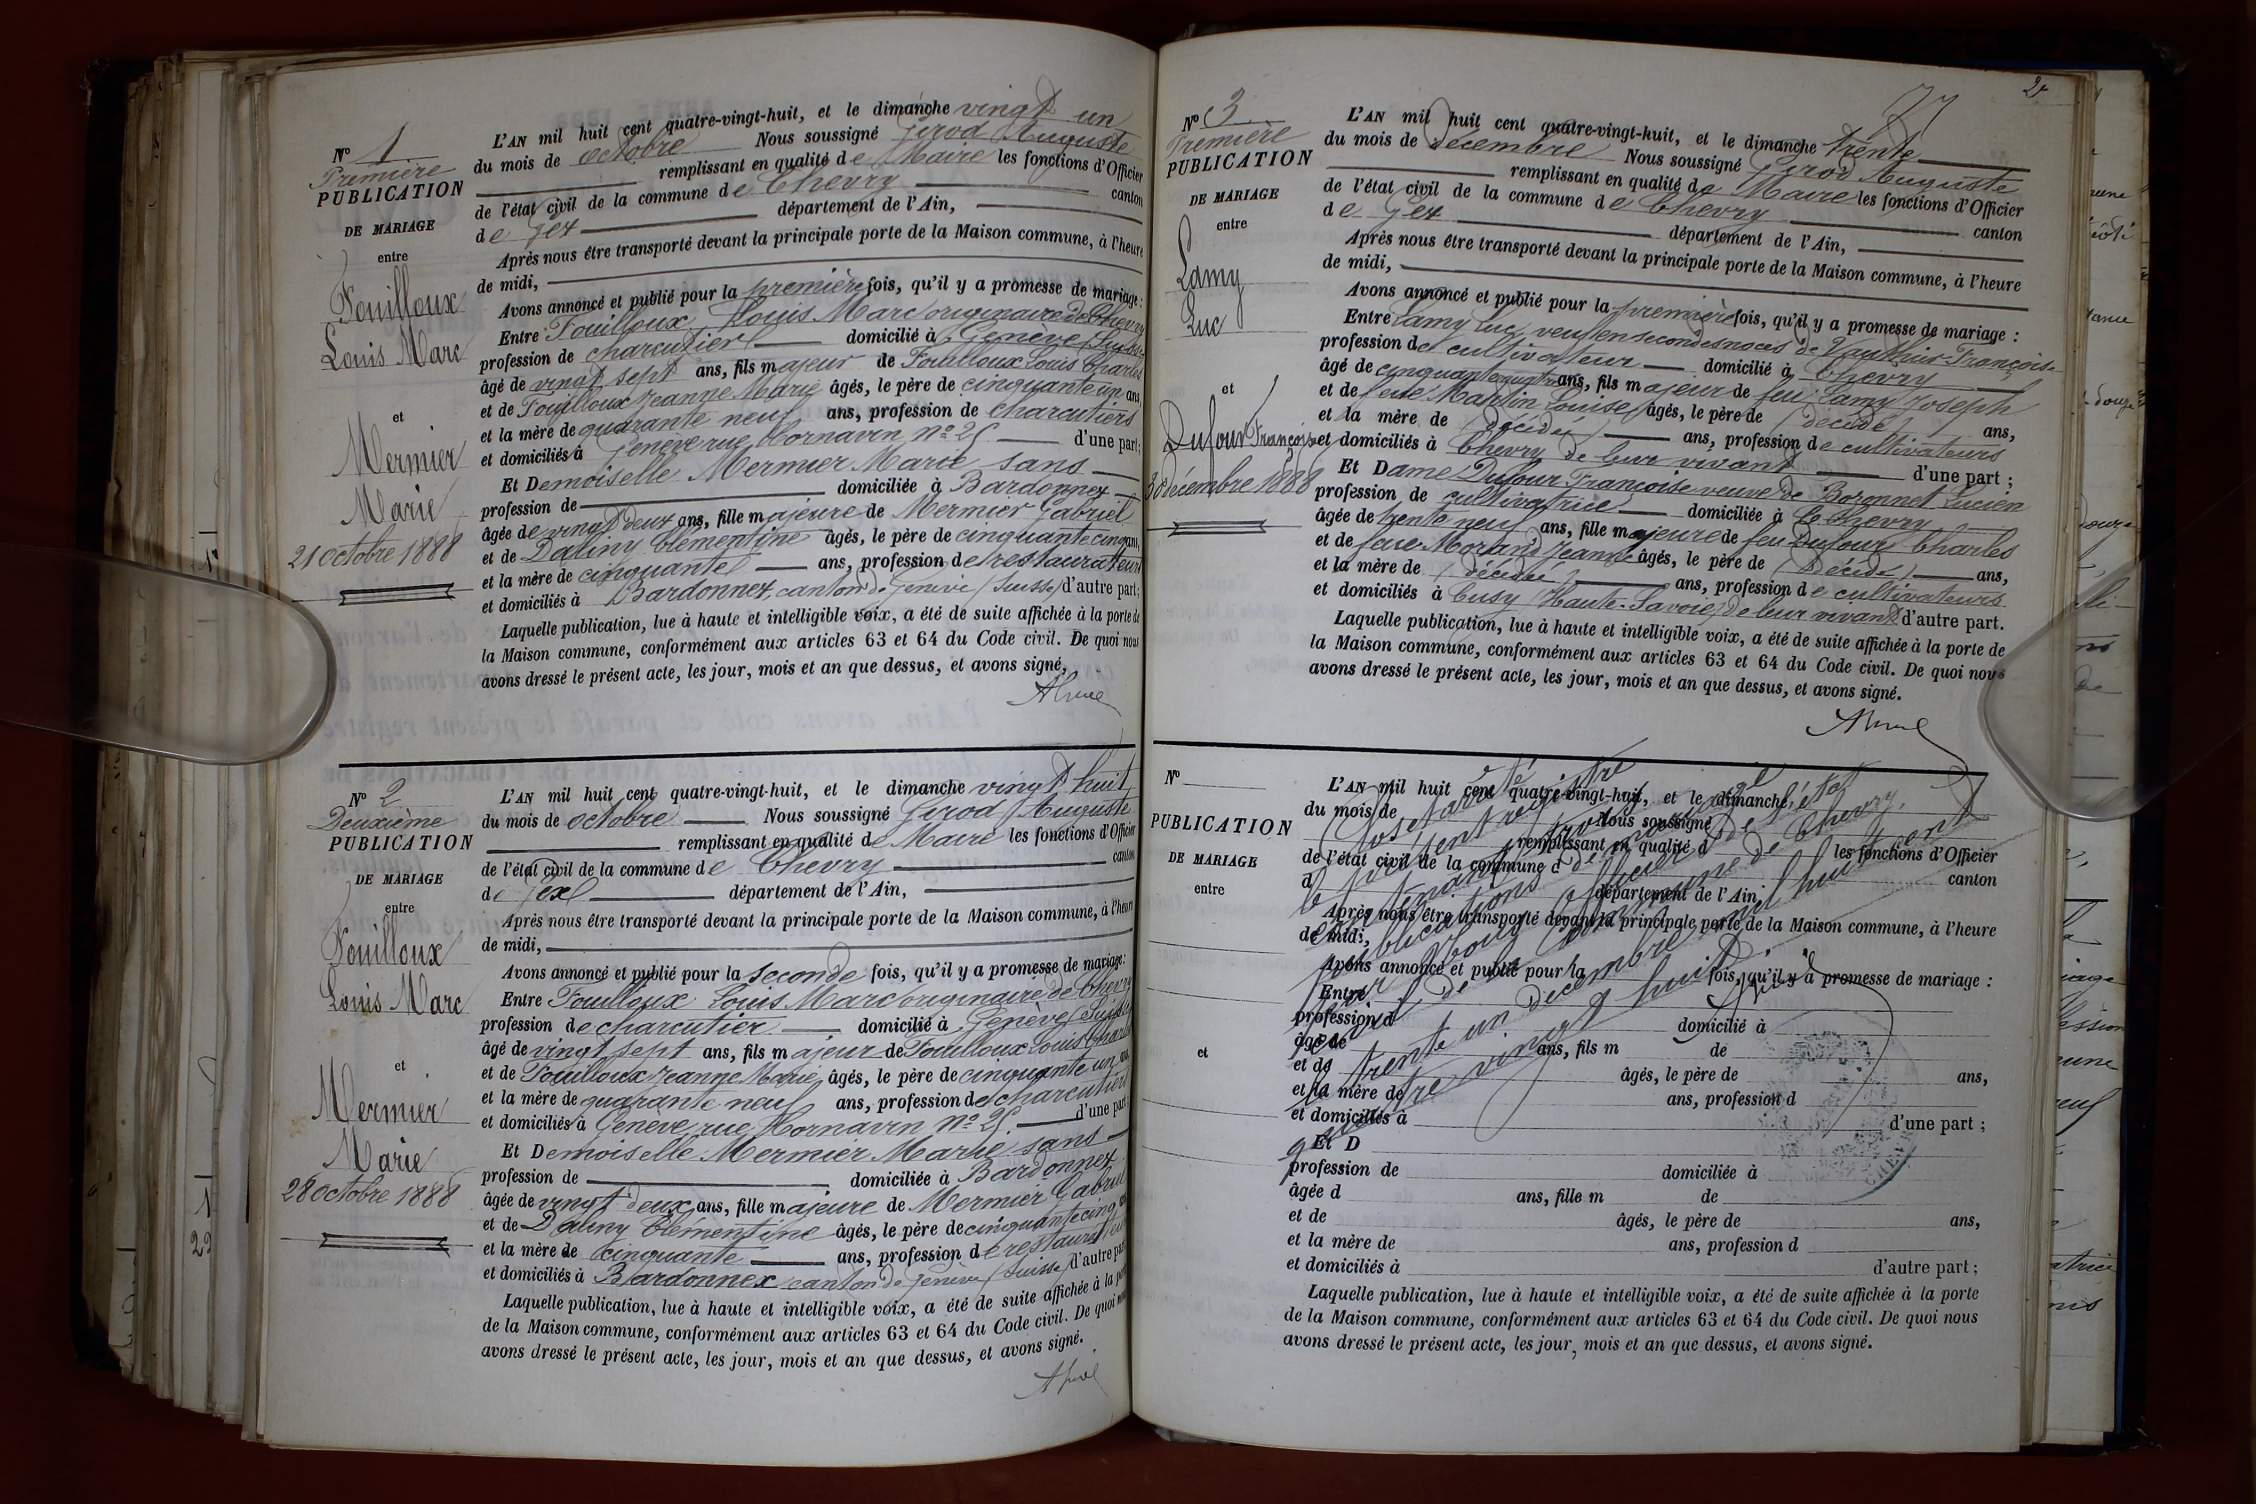 N° 1
Première
PUBLICATION
DE MARIAGE
entre
Fouilloux
Louis Marc
et
Mermier
Marie
21 octobre 1888
L'AN mil huit cent quatre-vingt-huit, et le dimanche vingt un
du mois de octobre Nous soussigné Girod Auguste
remplissant en qualité de Maire les fonctions d'Officier
de l'état civil de la commune de Chevry canton
de Gex département de l'Ain,
Après nous être transporté devant la principale porte de la Maison commune, à l'heure
de midi,
Avons annoncé et publié pour la première fois, qu'il y a promesse de mariage :
Entre Fouilloux Louis Marc originaire de Chevry
profession de charcutier domicilié à Genève (Suisse)
âgé de vingt sept ans, fils majeur de Fouilloux Louis Charles
et de Fouilloux Jeanne Marie âgés, le père de cinquante un ans,
et la mère de quarante neuf ans, profession de charcutiers
et domiciliés à Genève rue Cornavin N° 25 d'une part ;
Et Demoiselle Mermier Marie sans
profession de domiciliée à Bardonnex
âgée de vingt deux ans, fille majeure de Mermier Gabriel
et de Daliny Clémentine âgés, le père de cinquante cinq ans,
et la mère de cinquante ans, profession de restaurateurs
et domiciliés à Bardonnex, canton de Genève (Suisse) d'autre part ;
Laquelle publication, lue à haute et intelligible voix, a été de suite affichée à la porte de
la Maison commune, conformément aux articles 63 et 64 du Code civil. De quoi nous
avons dressé le présent acte, les jour, mois et an que dessus, et avons signé.
N° 2
Deuxième
PUBLICATION
DE MARIAGE
entre
Fouilloux
Louis Marc
et
Mermier
Marie
28 octobre 1888
L'AN mil huit cent quatre-vingt-huit, et le dimanche vingt huit
du mois de octobre Nous soussigné Girod Auguste
remplissant en qualité de Maire les fonctions d'Officier
de l'état civil de la commune de Chevry canton
de Gex département de l'Ain,
Après nous être transporté devant la principale porte de la Maison commune, à l'heure
de midi,
Avons annoncé et publié pour la seconde fois, qu'il y a promesse de mariage :
Entre Fouilloux Louis Marc originaire de Chevry
profession de charcutier domicilié à Genève (Suisse)
âgé de vingt sept ans, fils majeur de Fouilloux Louis Charles
et de Fouilloux Jeanne Marie âgés, le père de cinquante un ans,
et la mère de quarante neuf ans, profession de charcutiers
et domiciliés à Genève rue Cornavin N° 25. d'une part
Et Demoiselle Mermier Marie sans
profession de domiciliée à Bardonnex
âgée de vingt deux ans, fille majeure de Mermier Gabriel
et de Daliny Clémentine âgés, le père de cinquante cinq ans
et la mère de cinquante ans, profession de restaurateurs
et domiciliés à Bardonnex canton de Genève (Suisse) d'autre part
Laquelle publication, lue à haute et intelligible voix, a été de suite affichée à la porte
de la Maison commune, conformément aux articles 63 et 64 du Code civil. De quoi nous
avons dressé le présent acte, les jour, mois et an que dessus, et avons signé.
77
2
N° 3
Première
PUBLICATION
DE MARIAGE
entre
Lamy
Luc
et
Dufour Françoise
30 décembre 1888
L'AN mil huit cent quatre-vingt-huit, et le dimanche trente
du mois de Décembre Nous soussigné Girod Auguste
remplissant en qualité de Maire les fonctions d'Officier
de l'état civil de la commune de Chevry canton
de Gex département de l'Ain,
Après nous être transporté devant la principale porte de la Maison commune, à l'heure
de midi,
Avons annoncé et publié pour la première fois, qu'il y a promesse de mariage :
Entre Lamy Luc, veuf en secondes noces de Vauthier Françoise
profession de cultivateur domicilié à Chevry
âgé de cinquante quatre ans, fils majeur de feu Lamy Joseph
et de feue Martin Louise âgés, le père de (décédé) ans,
et la mère de (décédée) ans, profession de cultivateurs
et domiciliés à Chevry de leur vivant d'une part ;
Et Dame Dufour Françoise veuve de Boronnet Lucien
profession de cultivatrice domiciliée à Chevry
âgée de trente neuf ans, fille majeure de feu Dufour Charles
et de feue Morand Jeanne âgés, le père de (Décédé) ans,
et la mère de (décédée) ans, profession de cultivateurs
et domiciliés à Cusy (Haute-Savoie) de leur vivant d'autre part.
Laquelle publication, lue à haute et intelligible voix, a été de suite affichée à la porte de
la Maison commune, conformément aux articles 63 et 64 du Code civil. De quoi nous
avons dressé le présent acte, les jour, mois et an que dessus, et avons signé.
N°
PUBLICATION
DE MARIAGE
entre
et
L'AN mil huit cent quatre-vingt-huit, et le dimanche
du mois de Nous soussigné
remplissant en qualité d les fonctions d'Officier
de l'état civil de la commune d canton
d département de l'Ain,
Après nous être transporté devant la principale porte de la Maison commune, à l'heure
de midi,
Avons annoncé et publié pour la fois, qu'il y a promesse de mariage :
Entre
profession d domicilié à
âgé de ans, fils m de
et de âgés, le père de ans,
et la mère de ans, profession d
et domiciliés à d'une part ;
Et D
profession de domiciliée à
âgée d ans, fille m de
et de âgés, le père de ans,
et la mère de ans, profession d
et domiciliés à d'autre part ;
Laquelle publication, lue à haute et intelligible voix, a été de suite affichée à la porte
de la Maison commune, conformément aux articles 63 et 64 du Code civil. De quoi nous
avons dressé le présent acte, les jour, mois et an que dessus, et avons signé.
Clos et arrêté
le présent registre
contenant trois
publications de mariage
par Nous officier de l'état
civil de la commune de Chevry,
le trente un décembre mil huit cent
quatre vingt huit